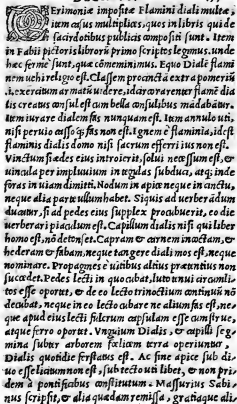 Cerimoniæ impositæ Flamini diali multæ,
item casus multiplices, quos in libris qui de
sacerdotibus publicis compositi sunt. Item
in Fabii pictoris librorū primo scriptos legimus. unde
hæc fermè sunt, quæ cōmeminimus. Equo Dialē flami
nem uehi religio est. Classem procinctā extra pomeriū
.i. exercitum armatū uidere, idcirco rarenter flamē dia
lis creatus consul est cum bella consulibus mādabātur.
Item iurare dialem fas nunquam est. Item annulo uti,
nisi peruio casso q; fas non est. Ignem è flaminia, id est
flaminis dialis domo nisi sacrum efferri ius non est.
Vinctum si ædes eius introierit, solui necessum est, &
uincula per impluuium in tegulas subduci, atq; inde
foras in uiam dimitti. Nodum in apice neque in cinctu,
neque alia parte ullum habet. Siquis ad uerberādum
ducatur, si ad pedes eius supplex procubuerit, eo die
uerberari piaculum est. Capillum dialis nisi qui liber
homo est, nō detonset. Capram & carnem incoctam, &
hederam & fabam, neque tangere diali mos est, neque
nominare. Propagines è uitibus altius prætentius non
succedet. Pedes lecti in quo cubat, luto tenui circumli-
tos esse oportet, & de eo lecto trinoctium continuū nō
decubat, neque in eo lecto cubare ne alium fas est, ne-
que apud eius lecti fulcrum capsulam esse cum strue,
atque ferro oportet. Vnguium Dialis, & capilli seg-
mina subter arborem fœlicem terra operiuntur.
Dialis quotidie feriatus est. Ac sine apice sub di-
uo esse licitum non est, sub tecto uti libet, & non pri-
dem à pontificibus constitutum. Massurius Sabi-
nus scripsit, & alia quædam remissa, gratiaque ali-